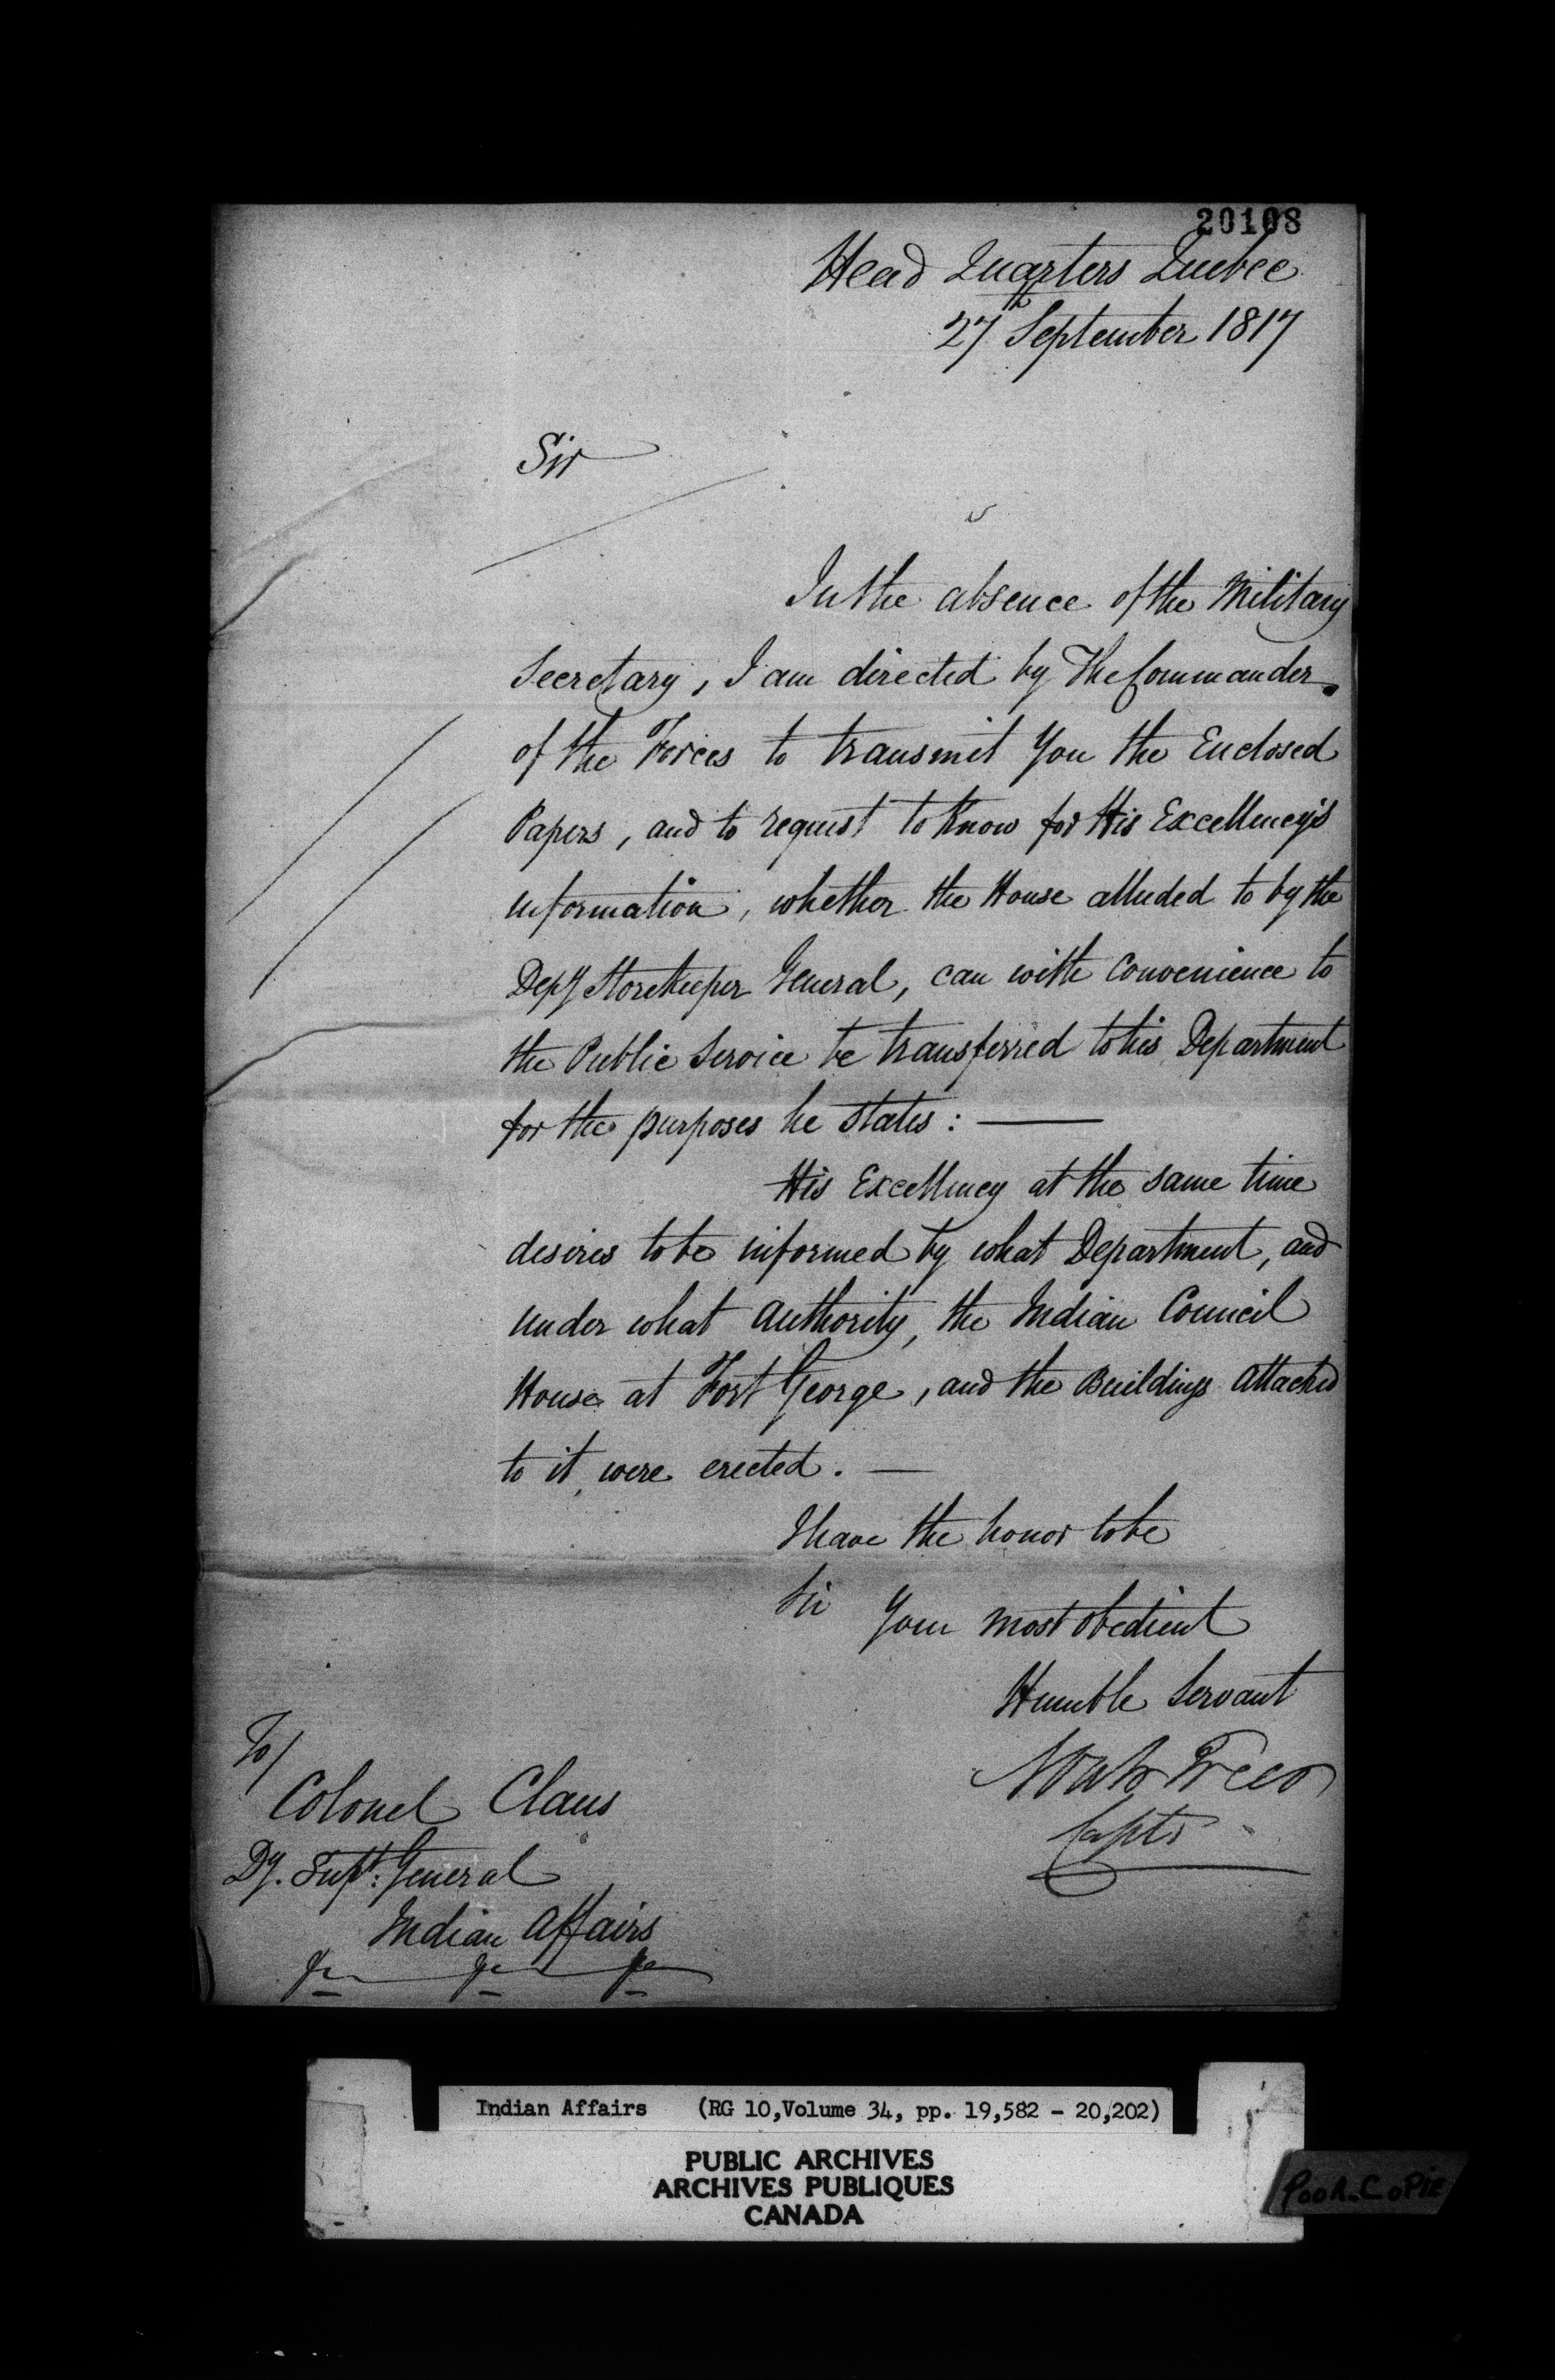 20108
Head Quarters Quebec
27th September 1817
Sir
In the absence of the Military
Secretary, I am directed by The Commander
of the Forces to transmit You the Enclosed
Papers, and to request to Know for His Excellency's
information, whether the House alluded to by the
Depy Storekeeper General, can with convenience to
the Public Service be transferred to his Department
for the purposes he states: —
His Excellency at the same time
desires to be informed by what Department, and
under what authority, the Indian Council
House at Fort George, and the Buildings attached
to it, were erected. —
I have the honor to be
Sir Your most obedient
Humble Servant
Noah Freer
Captn
To/
Colonel Claus
Dy. Supt: General
Indian Affairs
Indian Affairs (RG 10, Volume 34, pp. 19,582 - 20,202)
PUBLIC ARCHIVES
ARCHIVES PUBLIQUES
CANADA
POOR COPIE